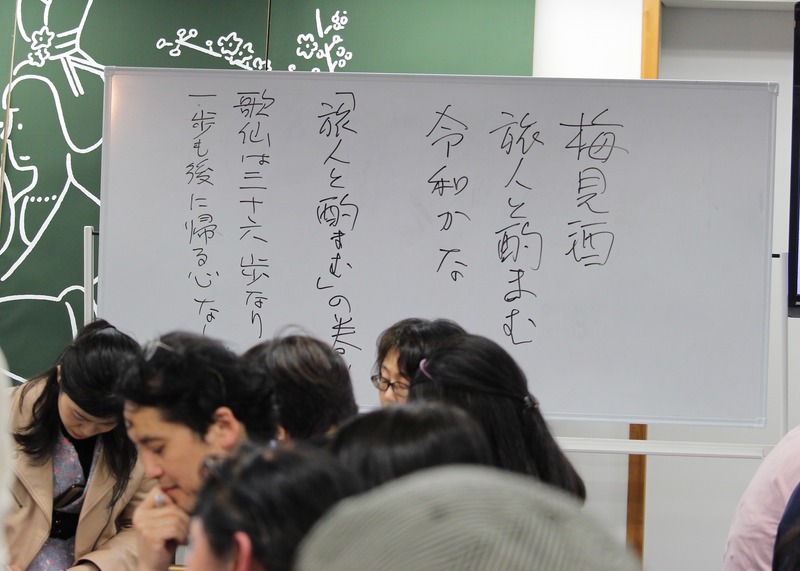 梅見酒
旅人と酌まむ
令和かな
「旅人と酌まむ」の巻
歌仙は三十六歩なり
一歩も後に帰る心なし